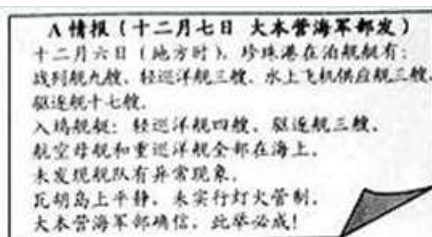 A情报(十二月七日 大本营海军部发)
十二月六日(地方时),珍珠港在泊舰艇有:
战列舰九艘、轻巡洋舰三艘、水上飞机供应舰三艘、
驱逐舰十七艘。
入坞舰艇:轻巡洋舰四艘、驱逐舰三艘。
航空母舰和重巡洋舰全部在海上。
未发现舰队有异常现象。
瓦胡岛上平静,未实行灯火管制。
大本营海军部确信,此举必成!